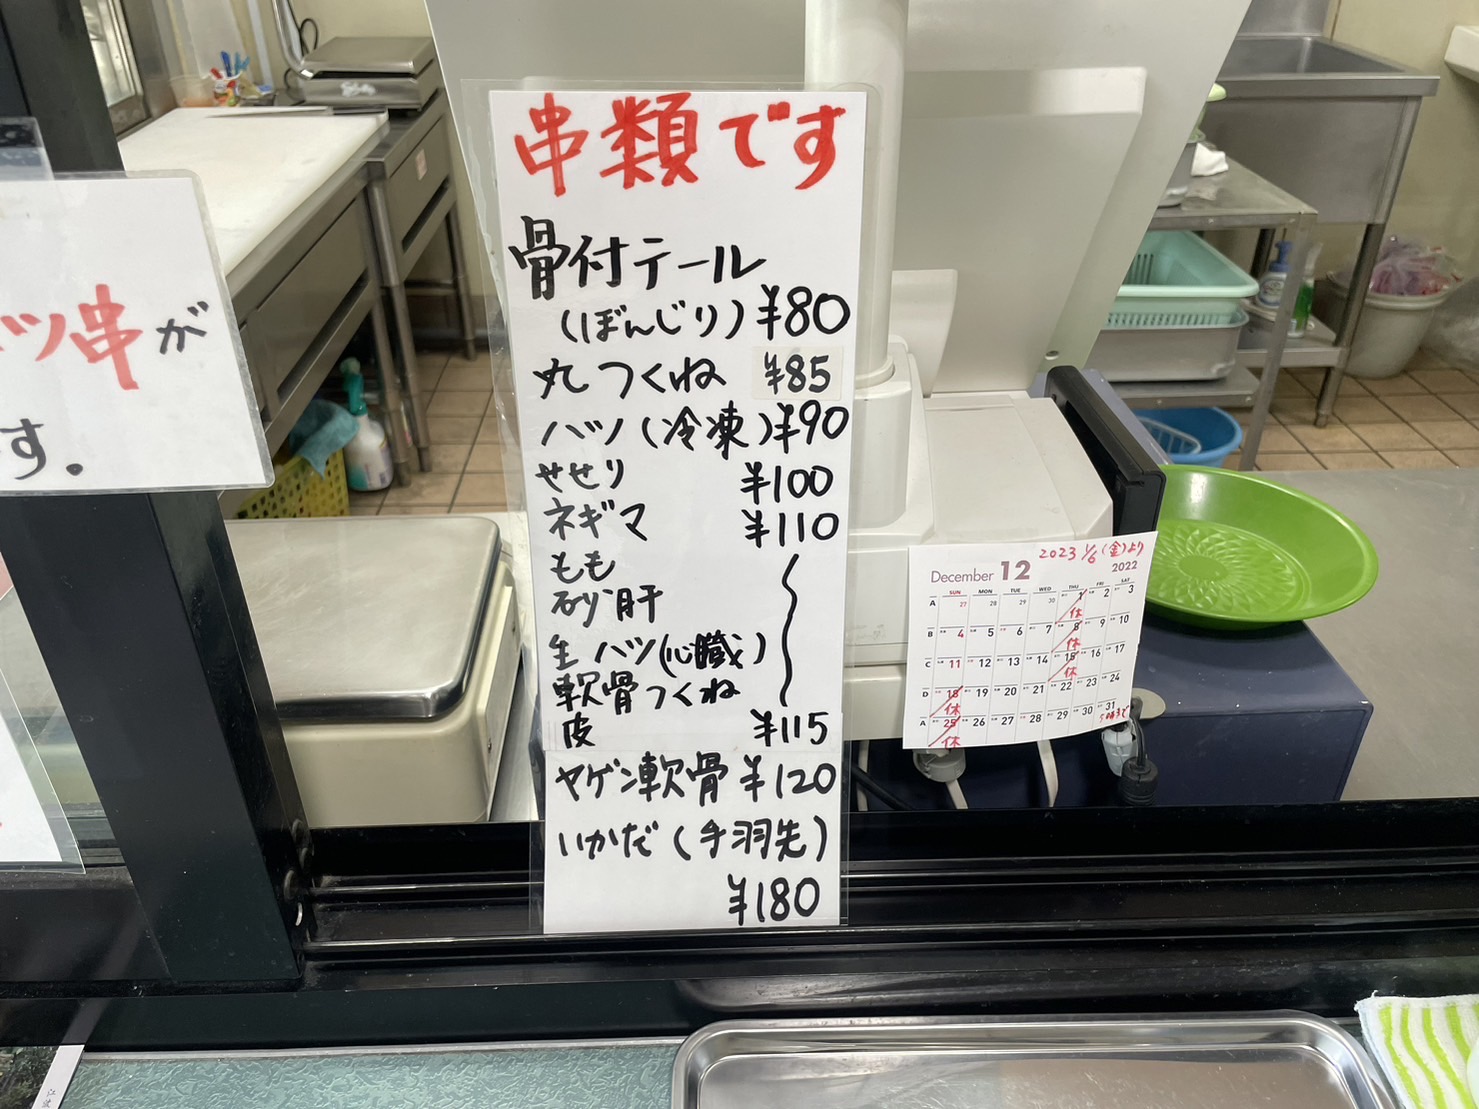 串類です
骨付テール
(ぼんじり) ¥80
丸つくね ¥85
ハツ (冷凍) ¥90
せせり ¥100
ネギマ ¥110
もも
砂肝
生ハツ(心臓)
軟骨つくね
皮 ¥115
ヤゲン軟骨 ¥120
いかだ (手羽先)
¥180
ツ串が
す。
2023 1/6 (金)より
December 12 2022
SUN MON TUE WED THU FRI SAT
A 27 28 29 30 1 2 3
休
B 4 5 6 7 8 9 10
休
C 11 12 13 14 15 16 17
休
D 18 19 20 21 22 23 24
休
A 25 26 27 28 29 30 31
休